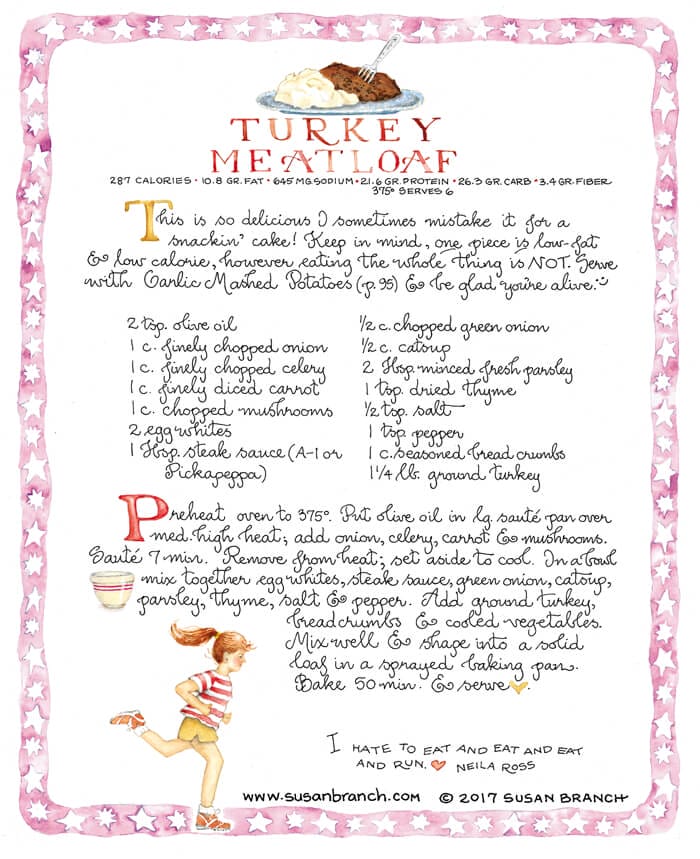 TURKEY
MEATLOAF
287 CALORIES • 10.8 GR. FAT • 645 MG. SODIUM • 21.6 GR. PROTEIN • 26.3 GR. CARB • 3.4 GR. FIBER
375° SERVES 6
This is so delicious I sometimes mistake it for a
snackin' cake! Keep in mind, one piece is low-fat
& low calorie, however eating the whole thing is NOT. Serve
with Garlic Mashed Potatoes (p. 95) & be glad you're alive.
2 tsp. olive oil
1 c. finely chopped onion
1 c. finely chopped celery
1 c. finely diced carrot
1 c. chopped mushrooms
2 egg whites
1 Tbsp. steak sauce (A-1 or
Pickapeppa)
1/2 c. chopped green onion
1/2 c. catsup
2 Tbsp. minced fresh parsley
1 tsp. dried thyme
1/2 tsp. salt
1 tsp. pepper
1 c. seasoned bread crumbs
1 1/4 lb. ground turkey
Preheat oven to 375°. Put olive oil in lg. sauté pan over
med. high heat; add onion, celery, carrot & mushrooms.
Sauté 7 min. Remove from heat; set aside to cool. In a bowl
mix together egg whites, steak sauce, green onion, catsup,
parsley, thyme, salt & pepper. Add ground turkey,
bread crumbs & cooled vegetables.
Mix well & shape into a solid
loaf in a sprayed baking pan.
Bake 50 min. & serve.
I HATE TO EAT AND EAT AND EAT
AND RUN. ♥ NEILA ROSS
www.susanbranch.com © 2017 SUSAN BRANCH